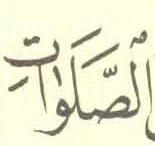 الْصَّلَوَاتِ